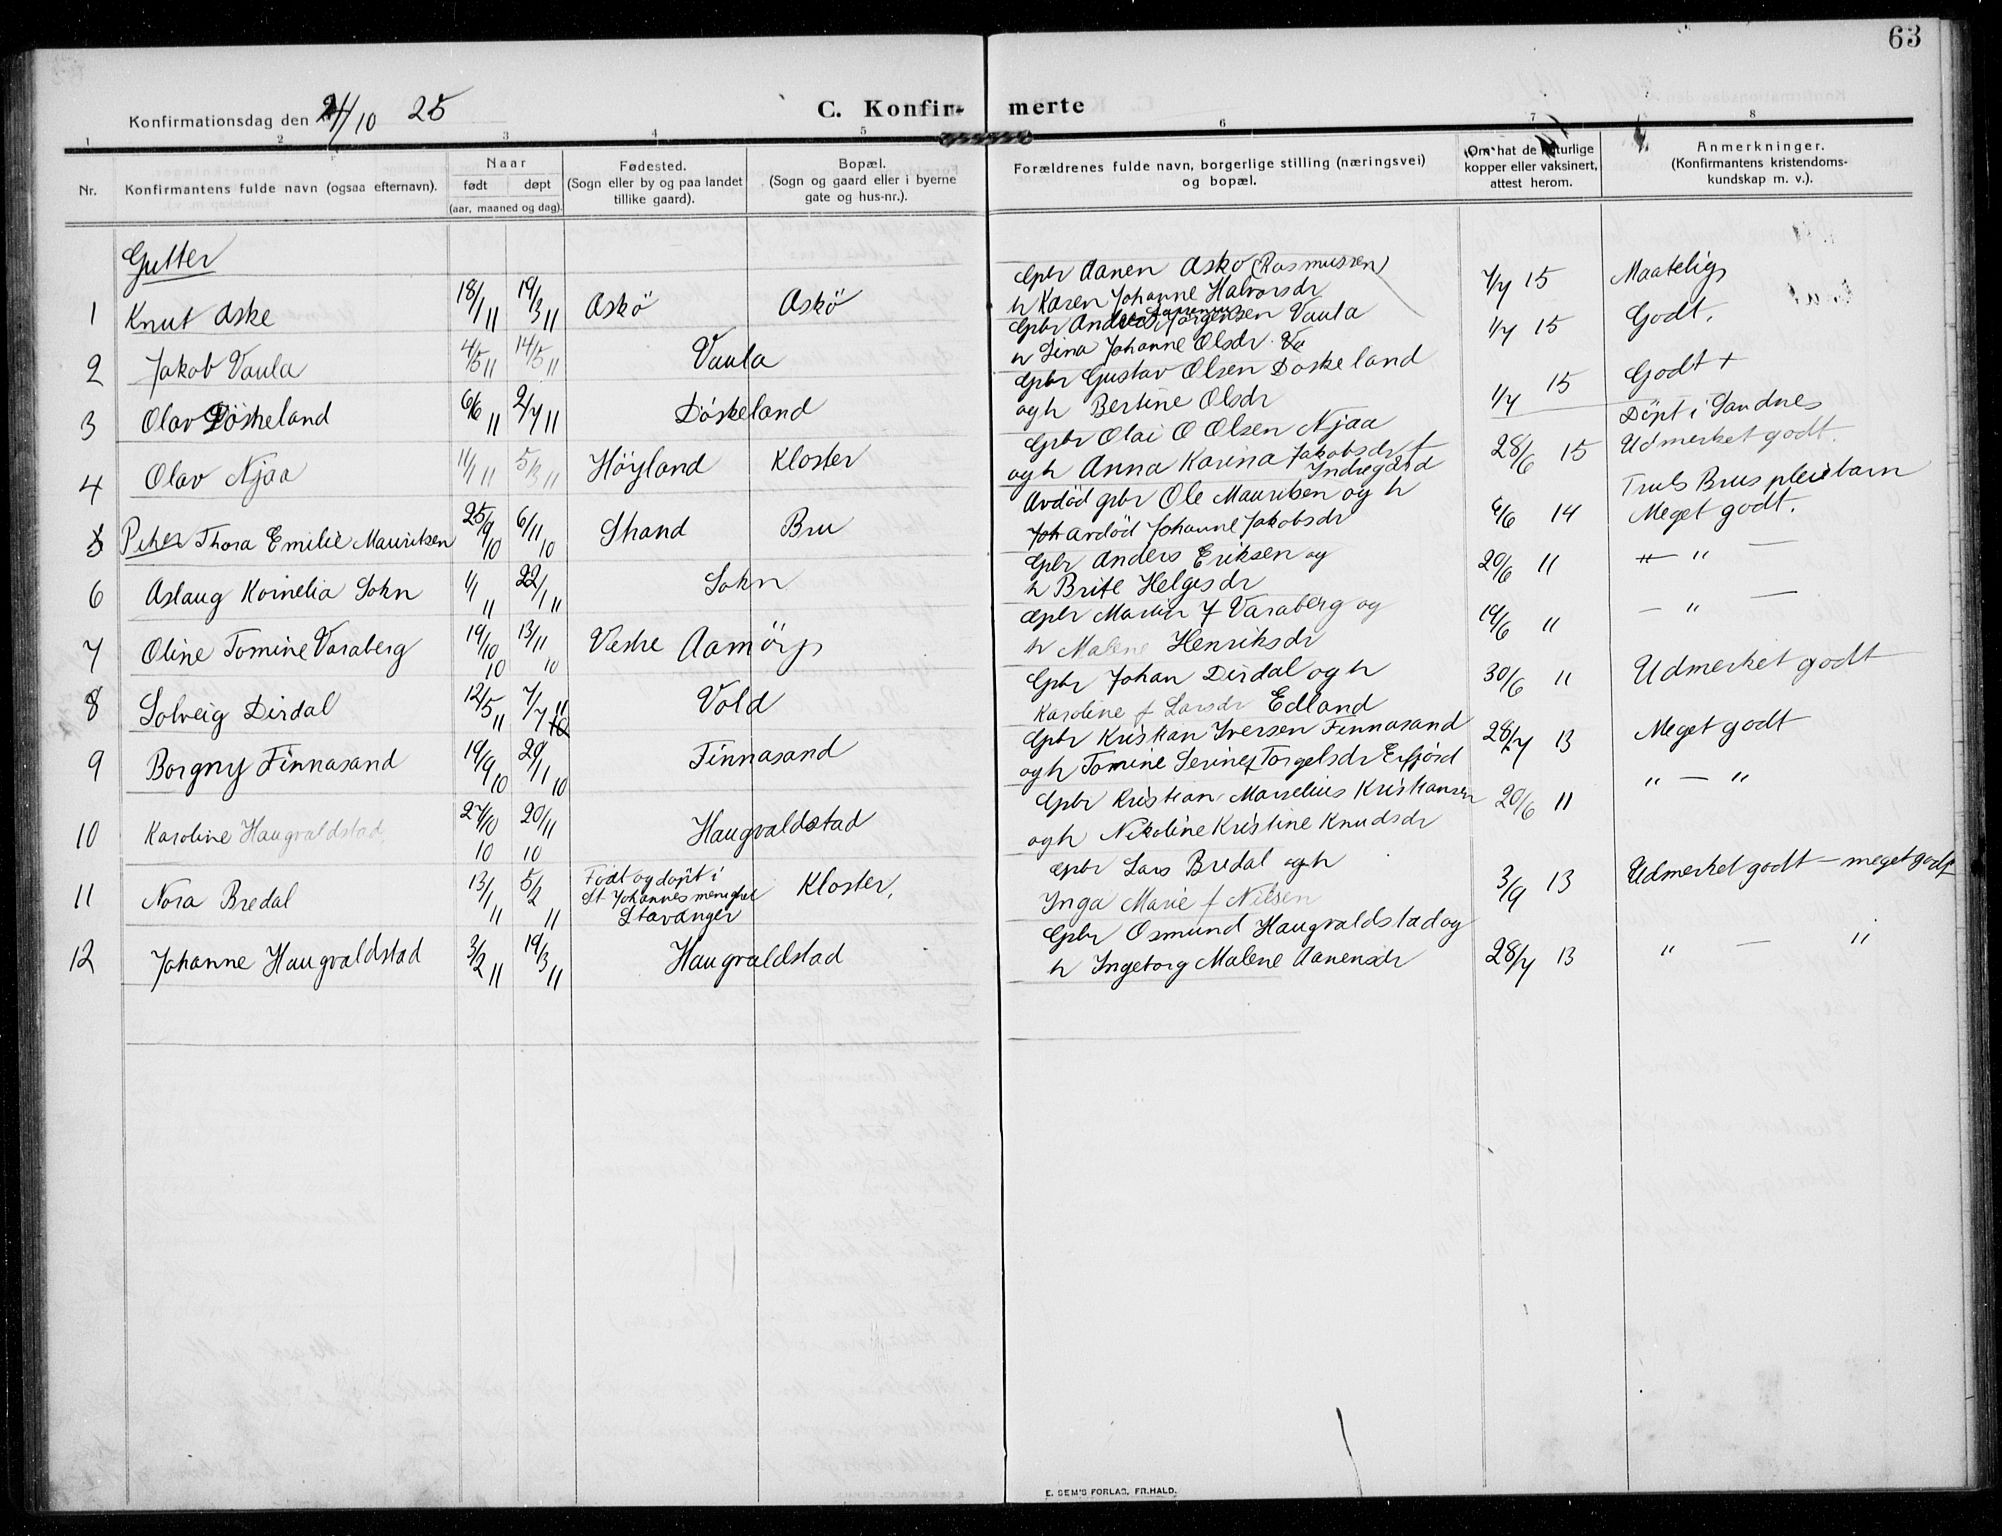 63
C. Konfir- merte
Konfirmationsdag den 24/10 25
1 2 3 4 5 6 7 8
Nr. Konfirmantens fulde navn (ogsaa efternavn). Naar født døpt (aar, maaned og dag). Fødested. (Sogn eller by og paa landet tillike gaard). Bopæl. (Sogn og gaard eller i byerne gate og hus-nr.). Forældrenes fulde navn, borgerlige stilling (næringsvei) og bopæl. Om hat de naturlige kopper eller vaksinert, attest herom. Anmerkninger. (Konfirmantens kristendoms-kundskap m. v.).
Gutter
1 Knut Aske 18/1 11 19/3 11 Askö Askö Gbr Aanen Askö (Rasmussen) h Karen Johanne Halvorsdr 7/7 15 Maatelig
2 Jakob Vaula 4/5 11 14/5 11 Vaula Gbr Jörgensen Vaula h Lina Johanne Olsdr 1/7 15 Godt.
3 Olav Döskeland 6/6 11 2/7 11 Döskeland Gbr Gustav Olsen Döskeland og h Bertine Olsdr 1/7 15 Godt +
4 Olav Njaa 11/1 11 5/3 11 Höyland Kloster Gbr Olai O Olsen Njaa og h Anna Karina Jakobsdr f Indregård 28/6 15 Döpt i Sandnes Udmerket godt.
5 Piker Thora Emilie Mauritsen 25/9 10 6/11 10 Strand Bru Avdöd gbr Ole Mauritsen og h avdöd Johanne Jakobsdr 6/6 14 Truls Brus pleiebarn Meget godt.
6 Aslaug Kornelia Sokn 1/1 11 22/1 11 Sokn Gbr Anders Eriksen og h Brite Helgesdr 20/6 11 — " —
7 Oline Tomine Varaberg 19/10 10 13/11 10 Vestre Aamöy Gbr Martin J Varaberg og h Malene Henriksdr 19/6 11 — " —
8 Solveig Dirdal 12/5 11 7/7 11 Vold Gbr Johan Dirdal og h Karoline f Larsdr Edland 30/6 11 Udmerket godt
9 Borgny Finnasand 19/9 10 20/11 10 Finnasand Gbr Kristian Iversen Finnasand og h Tomine Serine f Torgelsdr Erfjord 28/7 13 Meget godt
10 Karoline Haugvaldstad. 27/10 10 20/11 10 Haugvaldstad Gbr Kristian Marselius Kristiansen og h Nikoline Kristine Knudsdr 20/6 11 " — "
11 Nora Bredal 13/1 11 5/2 11 Födt og döpt i St. Johannes menighet Stavanger Kloster. Gbr Lars Bredal og h Inga Marie f Nilsen 3/9 13 Udmerket godt — meget godt
12 Johanne Haugvaldstad 3/2 11 19/3 11 Haugvaldstad Gbr Osmund Haugvaldstad og h Ingeborg Malene Aanensdr 28/7 13 " — "
E. SEM'S FORLAG, FR.HALD.